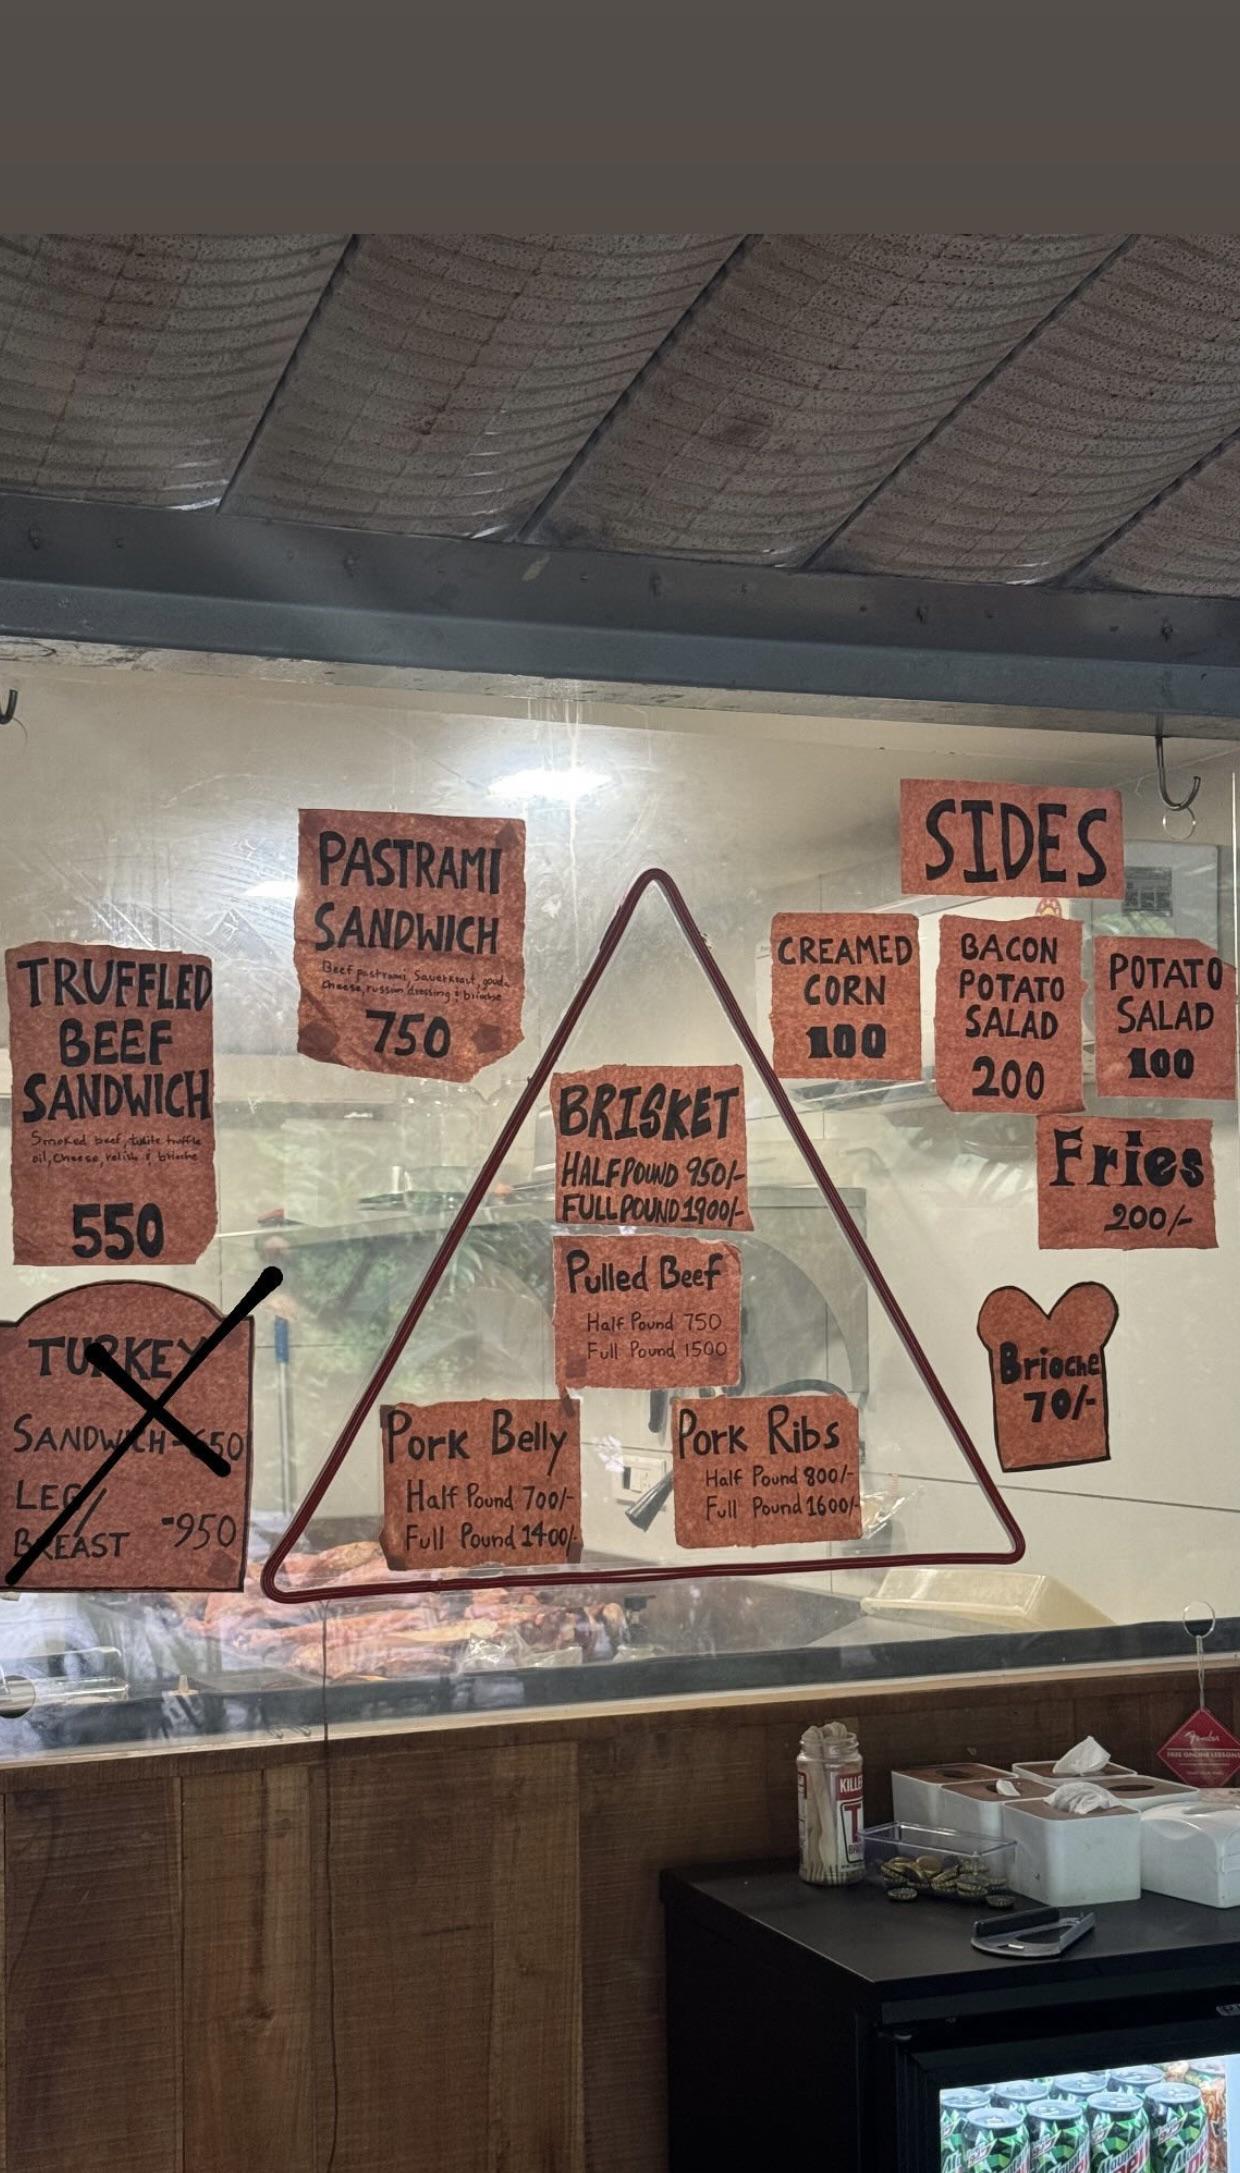 PASTRAMI
SANDWICH
Beef pastrami, Sauerkraut, gouda
Cheese, russian dressing & brioche
750
TRUFFLED
BEEF
SANDWICH
Smoked beef, white truffle
oil, Cheese, relish & brioche
550
TURKEY
SANDWICH - 650
LEG/
BREAST -950
BRISKET
HALF POUND 950/-
FULL POUND 1900/-
Pulled Beef
Half Pound 750
Full Pound 1500
Pork Belly
Half Pound 700/-
Full Pound 1400/-
Pork Ribs
Half Pound 800/-
Full Pound 1600/-
SIDES
CREAMED
CORN
100
BACON
POTATO
SALAD
200
POTATO
SALAD
100
Fries
200/-
Brioche
70/-
KILLE
Fender
FREE ONLINE LESSONS